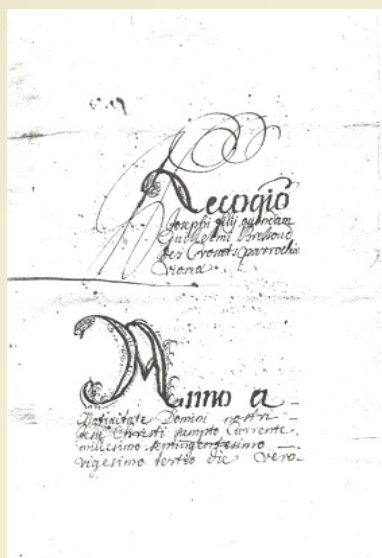 Recogió
Josephi filij quondam
Guillelmi
des Crouets parrochia
Viona
Anno a
Natiuitate Domini nostri
Jesu Christi sumpto Currente
millesimo septingentesimo
vigesimo tertio die vero